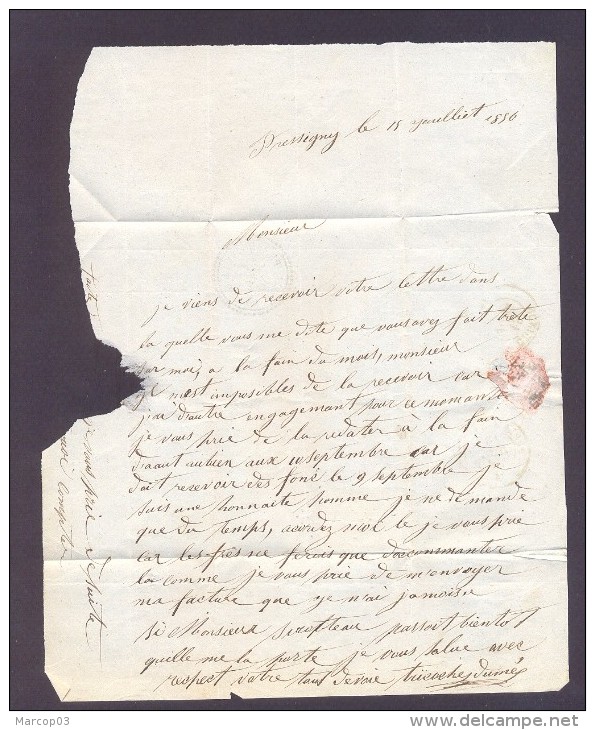 Pressigny le 15 jouilliet 1856
Monsieur
je viens de recevoir vôtre lettre dans
la quelle vous me dite que vous avez fait trete
sur moi, a la fain du mois, monsieur
il mest imposibles de la recevoir car
j'ai d'autre engagement pour ce momante
je vous prie de la redater a la fain
daout au bien aux 10 septembre car je
doit recevoir des fonc le 9 septembre je
suis une honnaite homme je ne demande
que du temps, acordez moi le je vous prie
car les frès ne ferois que daccommanter
la comme je vous prie de m'envoyer
ma facture que je n'ai jamaisu
Si Monsieur passoit bientot
quille me la porte je vous salue avec
respect votre tous devoie
je vous prie de suite
compte
Marcop03
www.delcampe.net